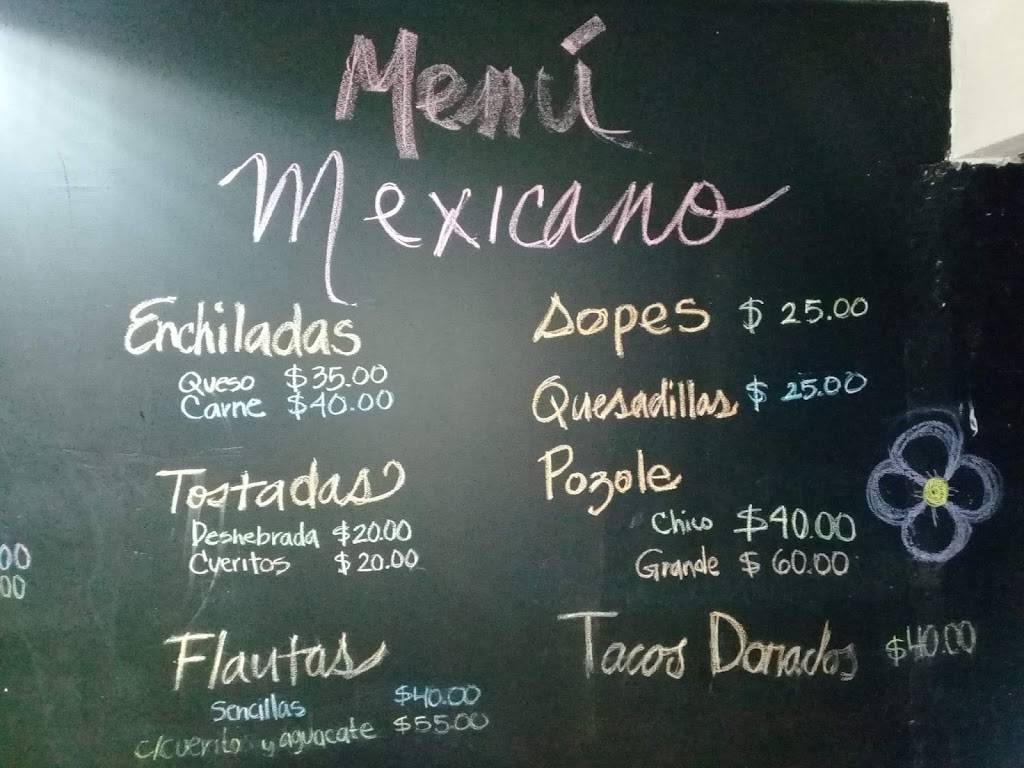 Menú
Mexicano
Enchiladas
Queso $35.00
Carne $40.00
Tostadas
Deshebrada $20.00
Cueritos $20.00
Flautas
Sencillas $40.00
c/cueritos y aguacate $55.00
Sopes $ 25.00
Quesadillas $ 25.00
Pozole
Chico $40.00
Grande $ 60.00
Tacos Dorados $40.00
00
00